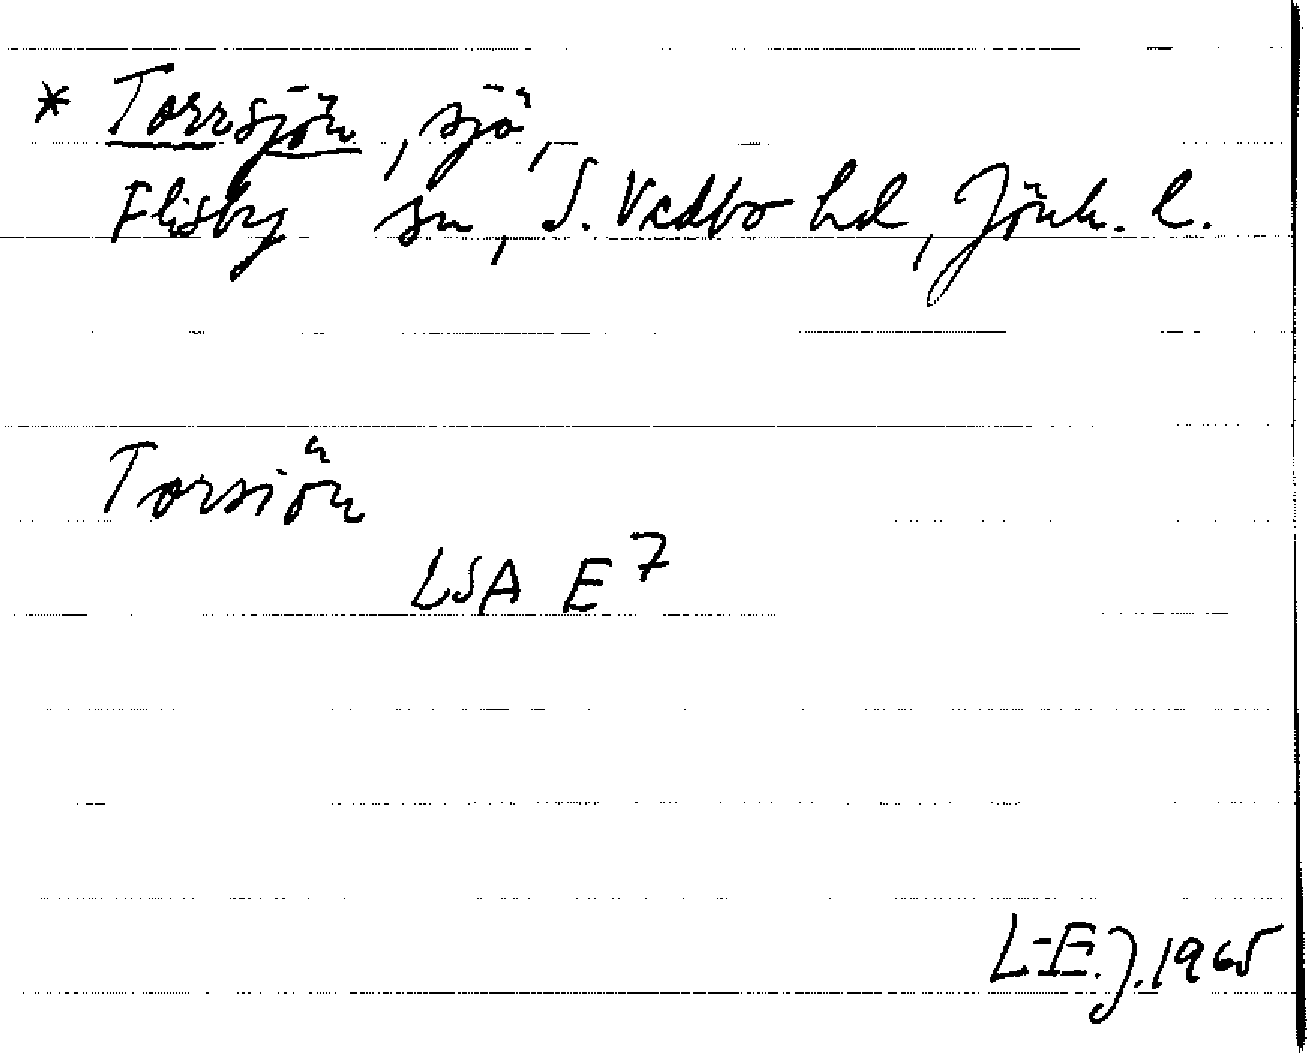 * Torrsjön, sjö,
Flisby sn, S. Vedbo hd, Jönk. l.
Torsiön
LSA E7
L-E.J. 1965